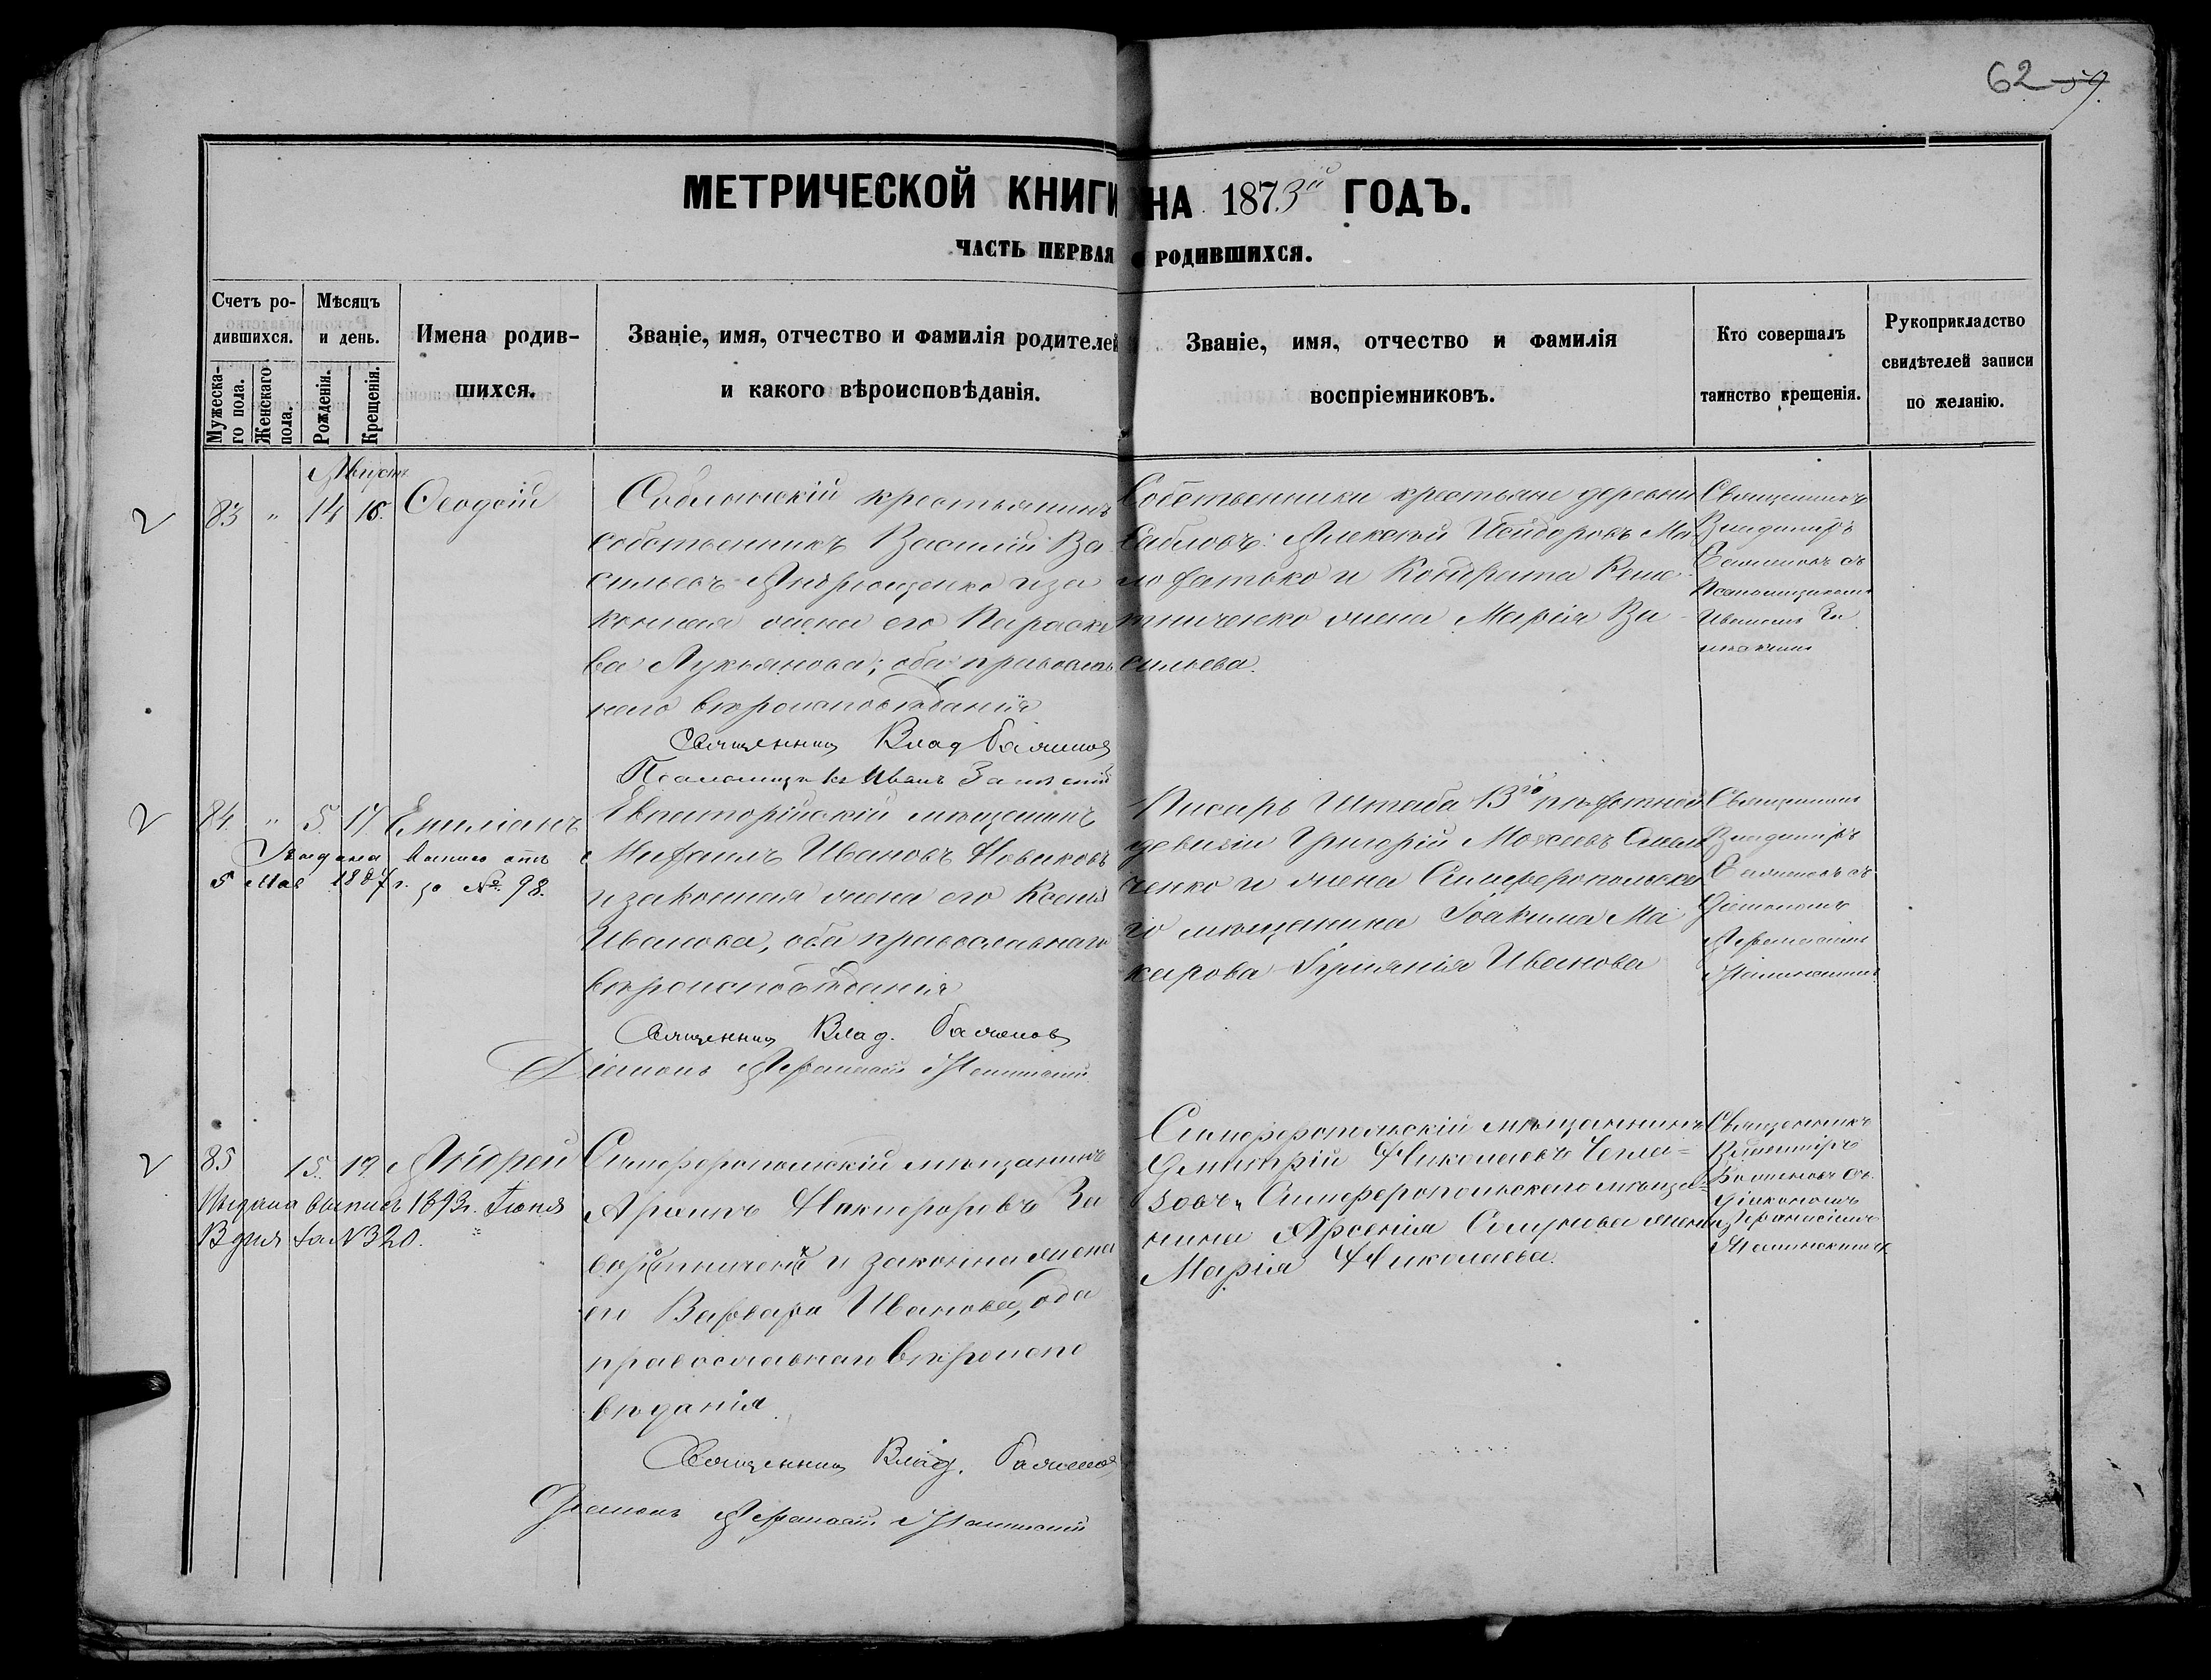 62 59.
МЕТРИЧЕСКОЙ КНИГИ НА 1873й ГОДЪ.
ЧАСТЬ ПЕРВАЯ О РОДИВШИХСЯ.
Счетъ ро-
дившихся.
Мужеска-
го пола.
Женскаго
пола.
Мѣсяцъ
и день.
Рожденія.
Крещенія.
Имена родив-
шихся.
Званіе, имя, отчество и фамилія родителей
и какого вѣроисповѣданія.
Званіе, имя, отчество и фамилія
воспріемниковъ.
Кто совершалъ
таинство крещенія.
Рукоприкладство
свидѣтелей записи
по желанію.
Августъ
83 " 14 16. Ѳеодосій
крестьянинъ
собственникъ Василій Ва
сильевъ Андрющенко и за
конная жена его Параске
ва Лукьянова; оба православ
наго вѣроисповѣданія
Священник Влад Баженов
Псаломщикъ Иванъ
Собственники крестьяне деревни
Сабловъ: Алексѣй Исидоровъ
и Кондрата
жена Марія Ва
сильева.
Священникъ
Владиміръ
Баженовъ съ
Псаломщикомъ
Иваномъ
84. " 5. 17. Емиліанъ
Выдана
5 Мая 1887 г. за № 98.
Евпаторійскій мѣщанинъ
Михаилъ Ивановъ Новиковъ
и законная жена его Ксенія
Иванова, оба православнаго
вѣроисповѣданія
Священник Влад. Баженов
Діаконъ Аѳанасій
Писарь Штаба 13й пѣхотной
дивизіи Григорій
ченко и жена Симферопольска
го мѣщанина Іоакима Ма
карова Іуліанія Иванова
Священникъ
Владиміръ
Баженовъ съ
Діакономъ
Аѳанасіемъ
85 15. 19. Андрей
Выдана выпись 1893 г. Іюня
В дня за №320.
Симферопольскій мѣщанинъ
Никифоровъ За
и законна жена
его Варвара Иванова, оба
православнаго вѣроиспо
вѣданія
Священник Влад. Баженов
Діаконъ Аѳанасій
Симферопольскій мѣщанинъ
Димитрій Николаевъ
Симферопольскаго мѣща
нина Арсенія жена
Марія Николаева.
Священникъ
Владиміръ
Баженовъ съ
Діакономъ
Аѳанасіемъ